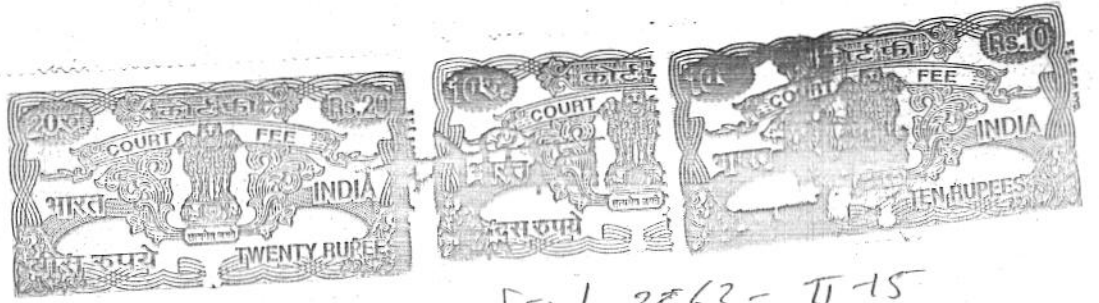 20रु कोर्ट फी Rs.20
COURT FEE
भारत INDIA
सत्यमेव जयते
बीस रुपये TWENTY RUPEE
10रु कोर्ट
COURT
भारत
सत्यमेव जयते
दस रुपये
कोर्ट फी Rs.10
COURT FEE
भारत INDIA
TEN RUPEES
II-15